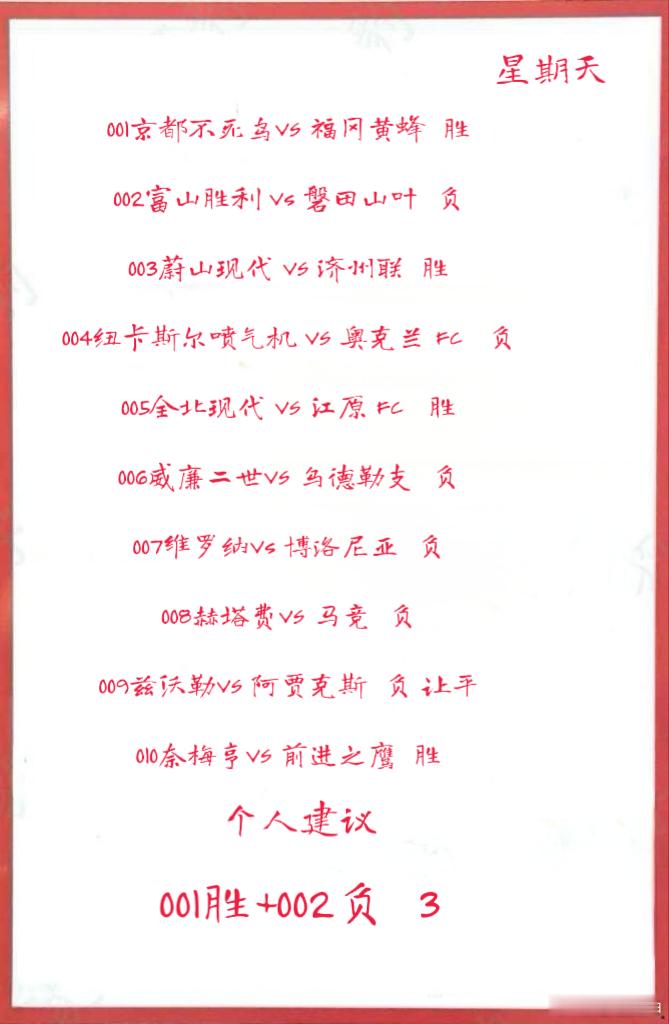 星期天
001京都不死鸟VS 福冈黄蜂 胜
002富山胜利 VS 磐田山叶 负
003蔚山现代 VS 济州联 胜
004纽卡斯尔喷气机 VS 奥克兰 FC 负
005全北现代 VS 江原 FC 胜
006威廉二世VS 乌德勒支 负
007维罗纳VS 博洛尼亚 负
008赫塔费VS 马竞 负
009兹沃勒VS 阿贾克斯 负 让平
010奈梅亨VS 前进之鹰 胜
个人建议
001胜+002负 3